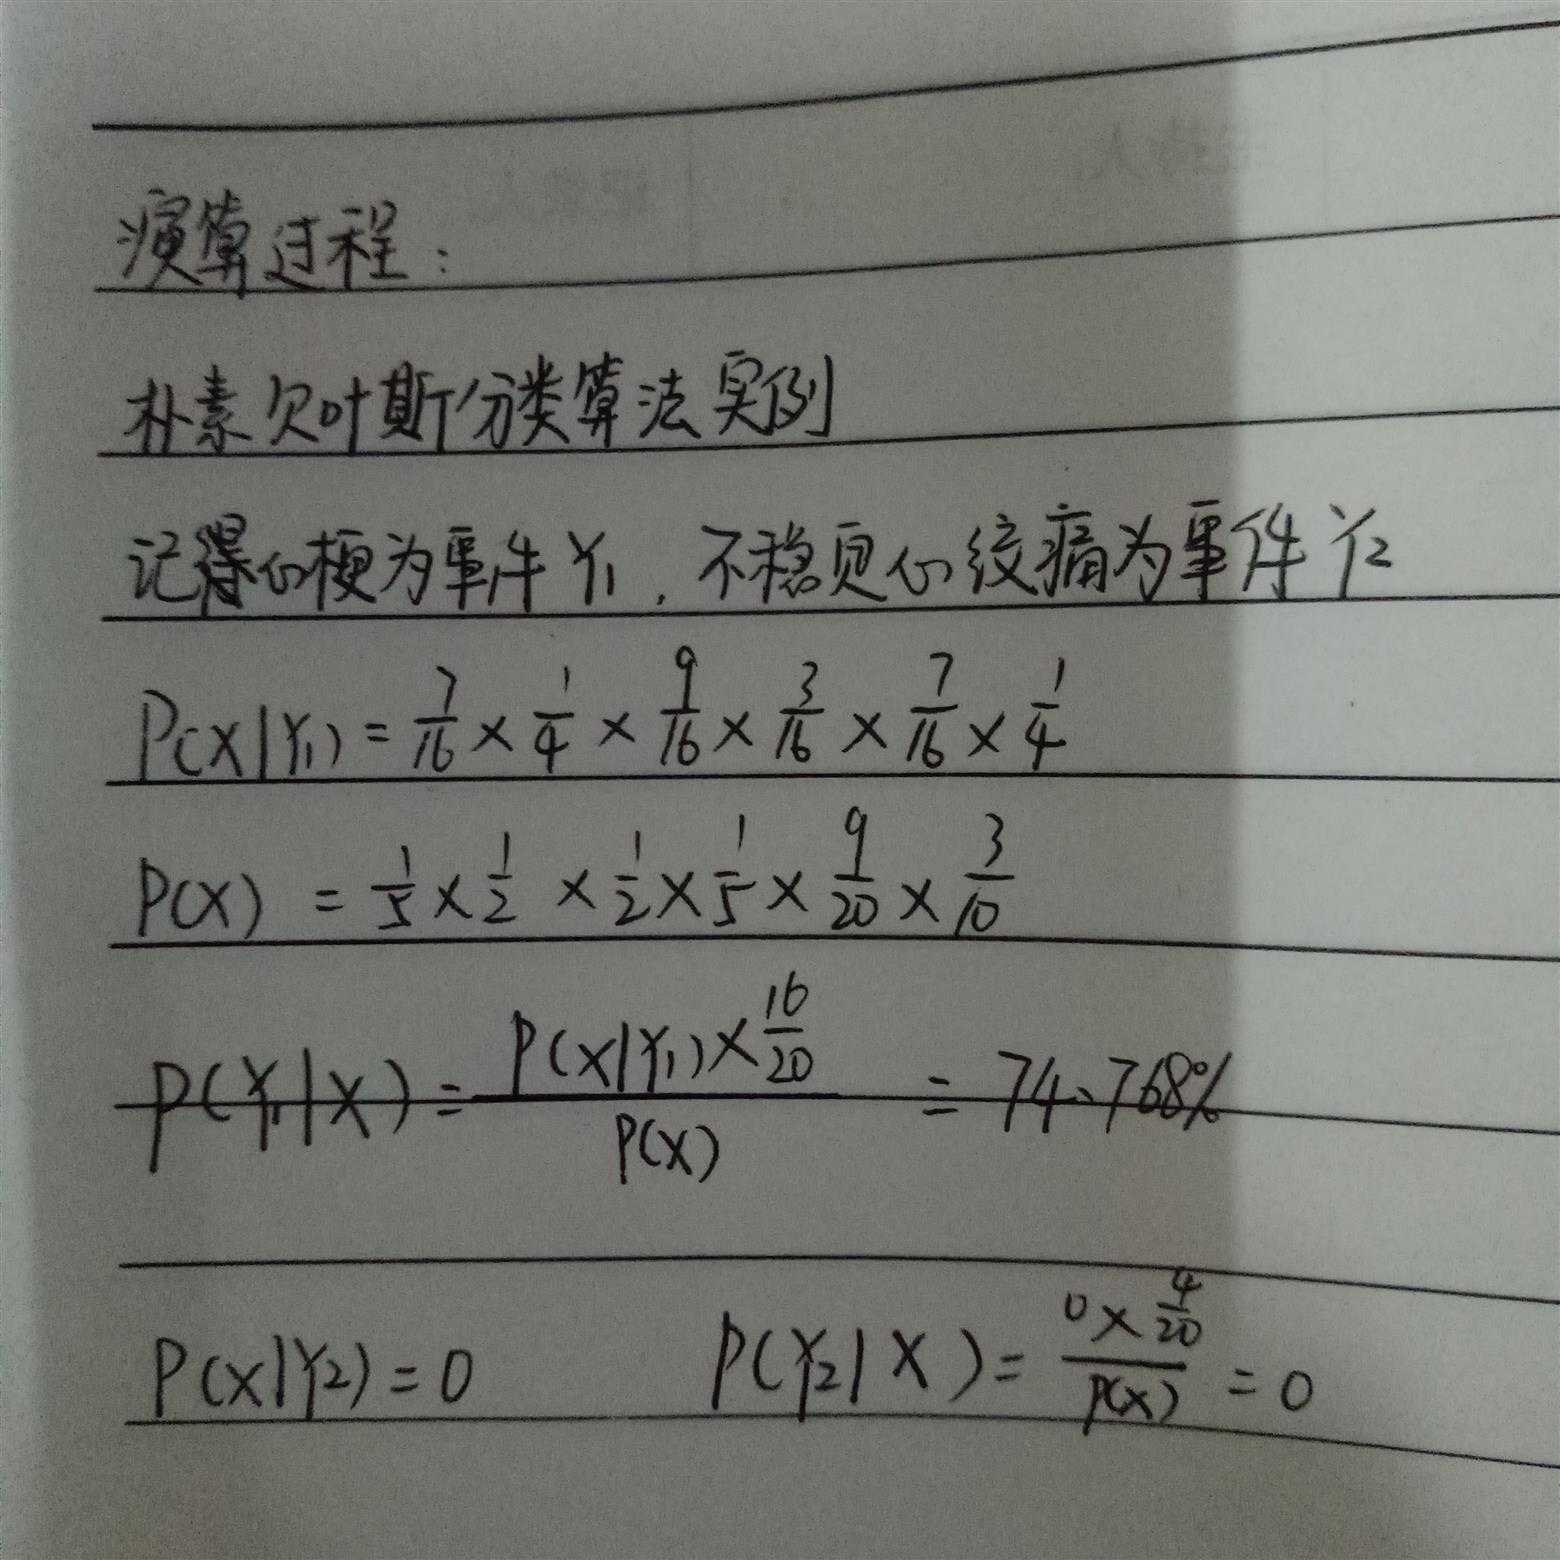 演算过程:
朴素贝叶斯分类算法实例
记得心梗为事件 Y₁, 不稳定心绞痛为事件 Y₂
P(X|Y₁) = 7/16 × 1/4 × 9/16 × 3/16 × 7/16 × 1/4
P(X) = 1/5 × 1/2 × 1/2 × 1/5 × 9/20 × 3/10
P(Y₁|X) = P(X|Y₁) × 16/20 / P(X) = 74.768%
P(X|Y₂) = 0 P(Y₂|X) = 0 × 4/20 / P(X) = 0